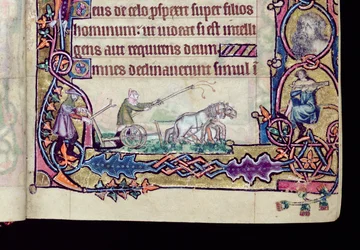 eus de celo prspexit super filios
hominum: ut uideat si est intelli
gens aut requirens deum
mnes declinauerunt simul i